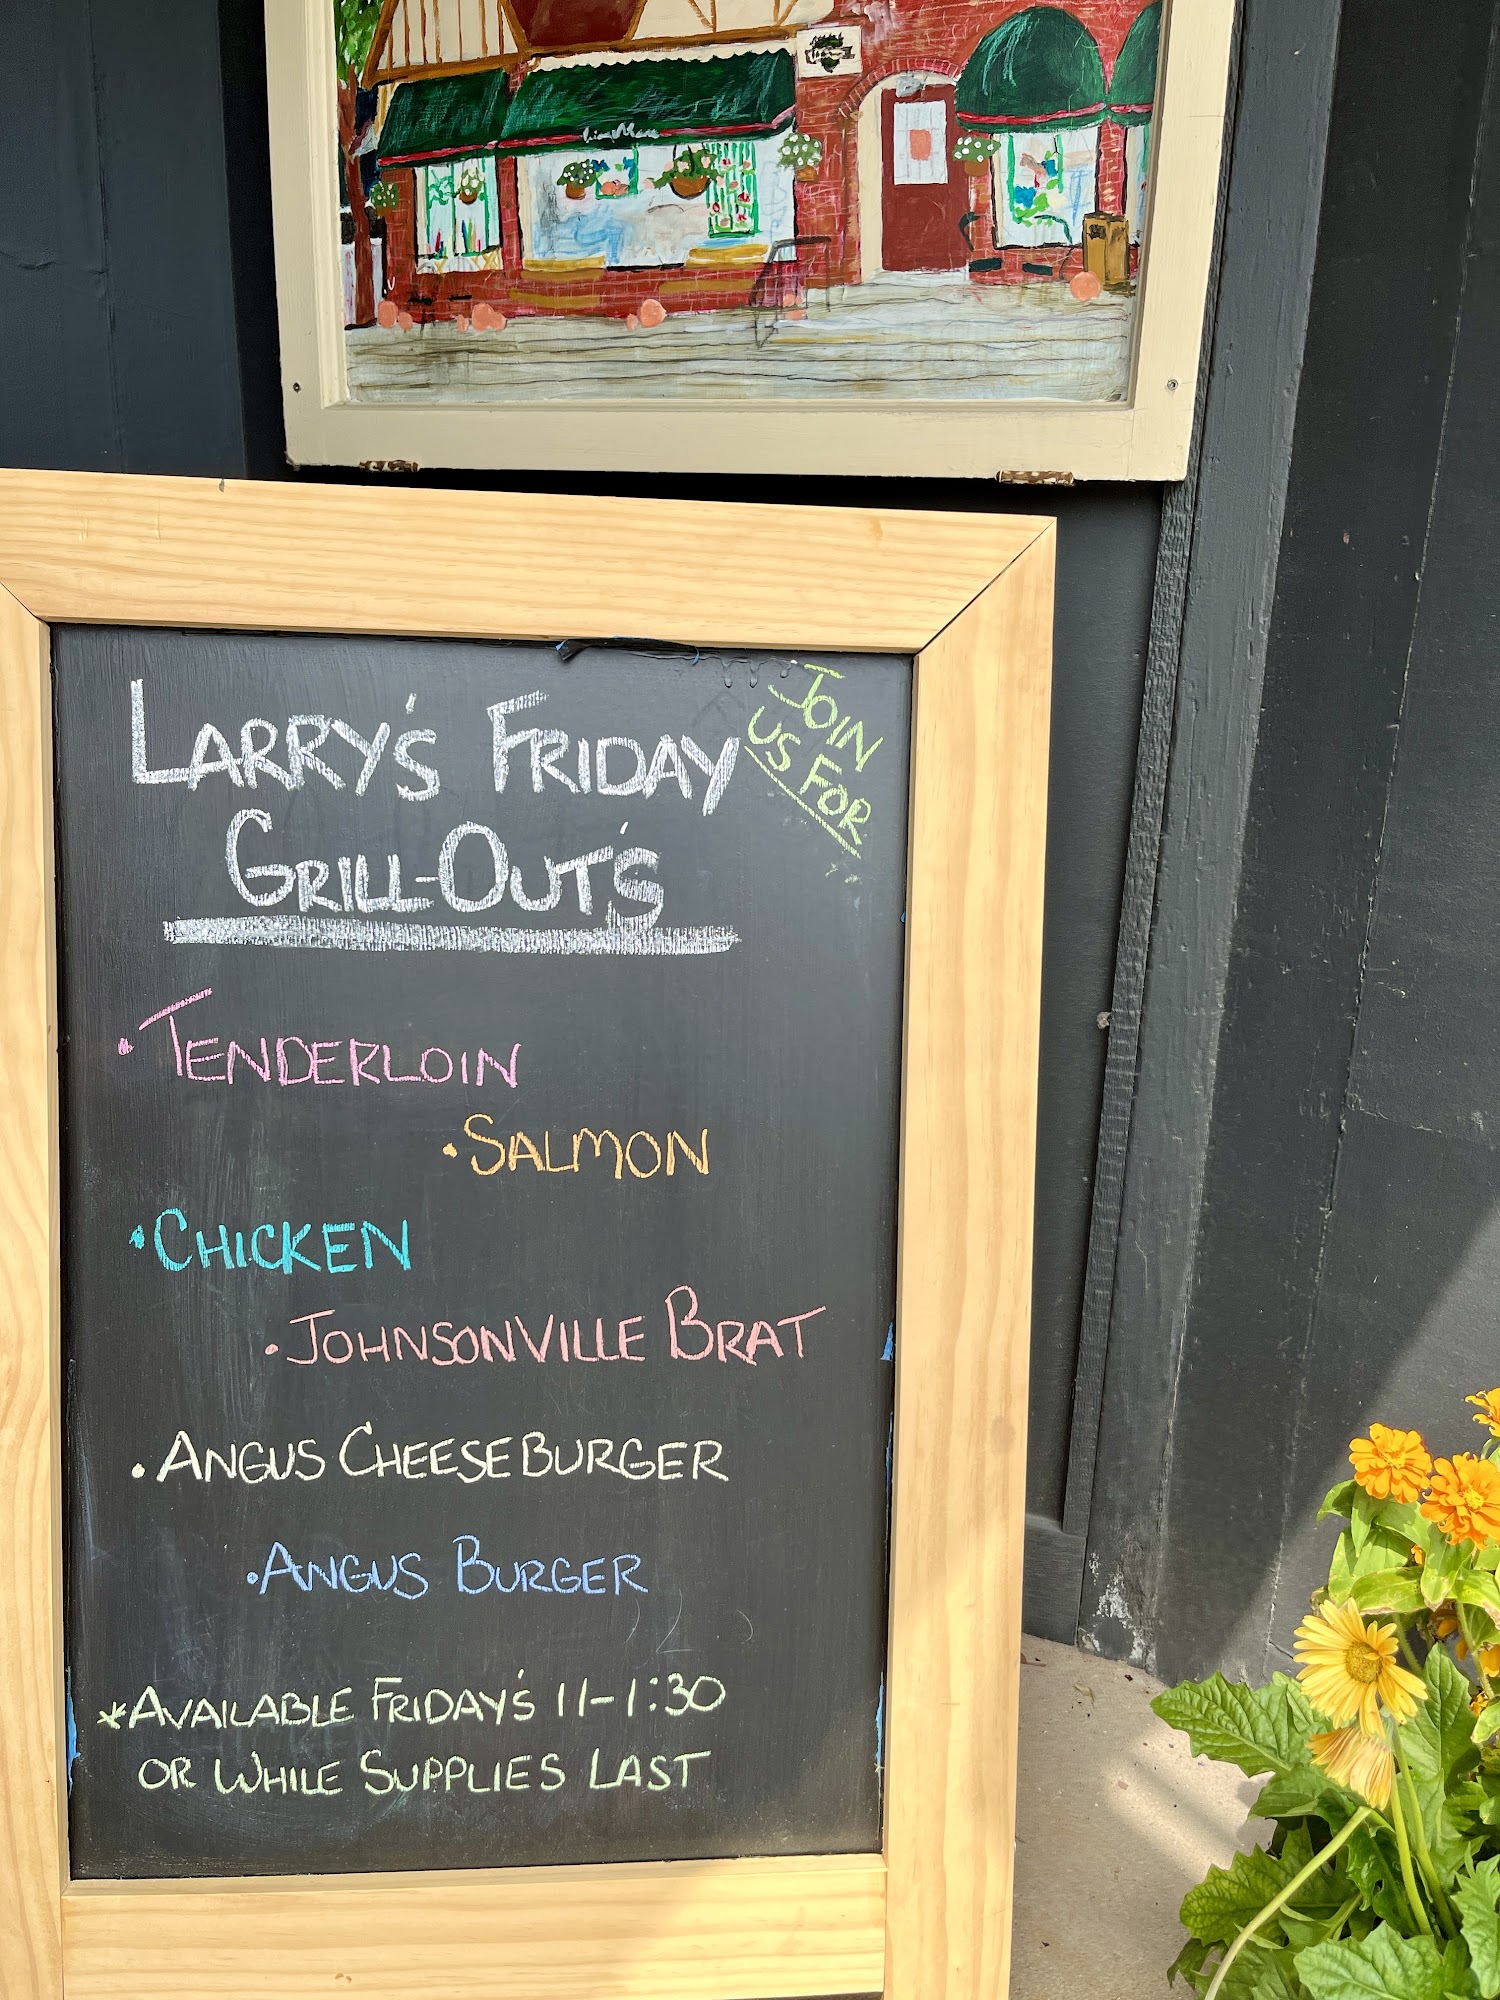 JOIN
US FOR
LARRY'S FRIDAY
GRILL-OUT'S
• TENDERLOIN
• SALMON
• CHICKEN
• JOHNSONVILLE BRAT
• ANGUS CHEESEBURGER
• ANGUS BURGER
* AVAILABLE FRIDAY'S 11-1:30
OR WHILE SUPPLIES LAST